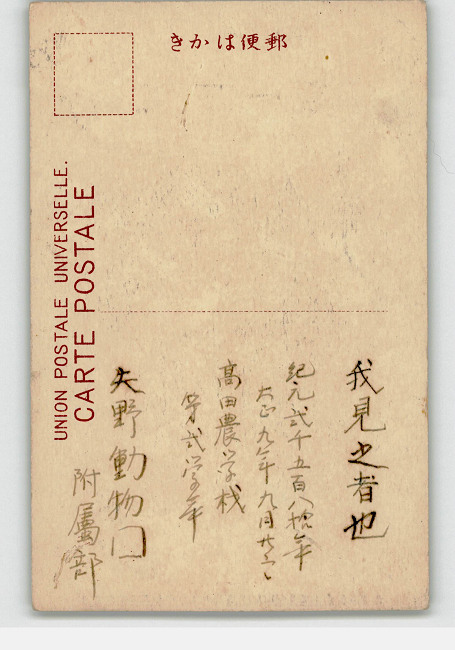 きかは便郵
UNION POSTALE UNIVERSELLE.
CARTE POSTALE
我見之者也
紀元弐千五百八拾年
大正九年九月廿
高田農学校
弐学年
矢野動物
附属部